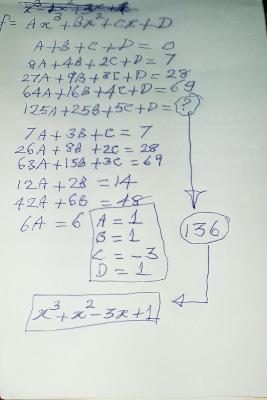 f = Ax³+Bx²+Cx+D
A+B+C+D = 0
8A+4B+2C+D = 7
27A+9B+3C+D = 28
64A+16B+4C+D = 69
125A+25B+5C+D = ?
7A+3B+C = 7
26A+8B+2C = 28
63A+15B+3C = 69
12A+2B = 14
42A+6B = 48
6A = 6
A = 1
B = 1
C = -3
D = 1
136
x³+x²-3x+1